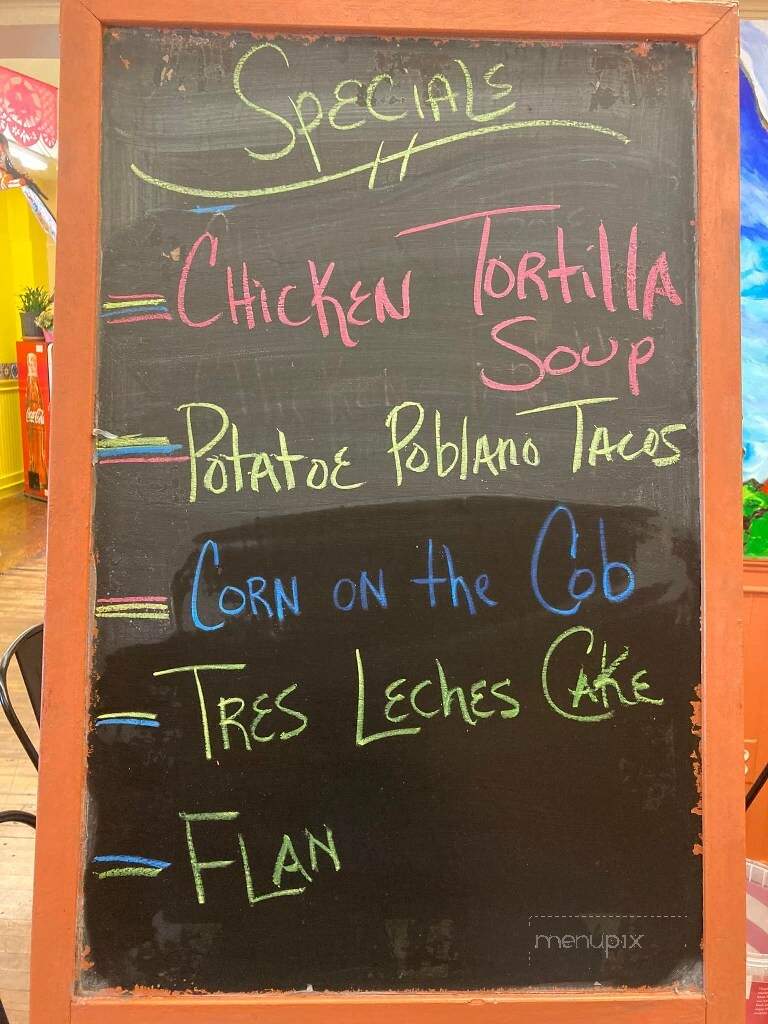 Specials
Chicken Tortilla
Soup
Potatoe Poblano Tacos
Corn on the Cob
Tres Leches Cake
Flan
Coca-Cola
menupix